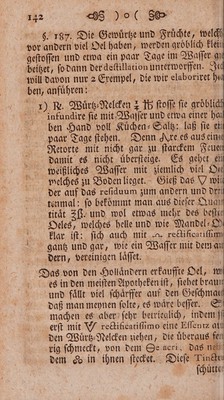 142 )o(
§. 187. Die Gewürtze und Früchte, welche
vor andern viel Oel haben, werden gröblich klein
gestossen und etwa ein paar Tage im Wasser ge
beitzet, so dann der destillation unterworffen.
will davon nur 2 Exempel, die wir elaboriret ha
ben, anführen:
1) R. Würtz-Nelcken stosse sie gröblich
infundire sie mit Wasser und etwa einer hal
ben Hand voll Küchen-Saltz: laß sie ein
paar Tage stehen. Denn aus einer
Retorte mit nicht gar zu starcken Feuer
damit es nicht übersteige. Es gehet ein
weißliches Wasser mit ziemlich viel Oel
welches zu Boden lieget. Gieß das wie
der auf das residuum zum andern und dritten
tenmal: so bekömmt man aus dieser Quan
tität und wol etwas mehr des besten
Oeles, welches helle und wie Mandel-Oel
klar ist: sich auch mit rectificatissimo
gantz und gar, wie ein Wasser mit dem an
dern, vereinigen lässet.
Das von den Holländern erkauffte Oel, wie
es in den meisten Apotheken ist, siehet braun
und fällt viel schärffer auf den Geschmack
daß man meynen solte, es wäre besser.
machen es aber sehr betrieglich, indem sie
erst mit rectificatissimo eine Essentz aus
den Würtz-Nelcken nehmen, die überaus feu
rig schmeckt, von dem
dem in ihnen stecket. Diese Tinctur
schütten